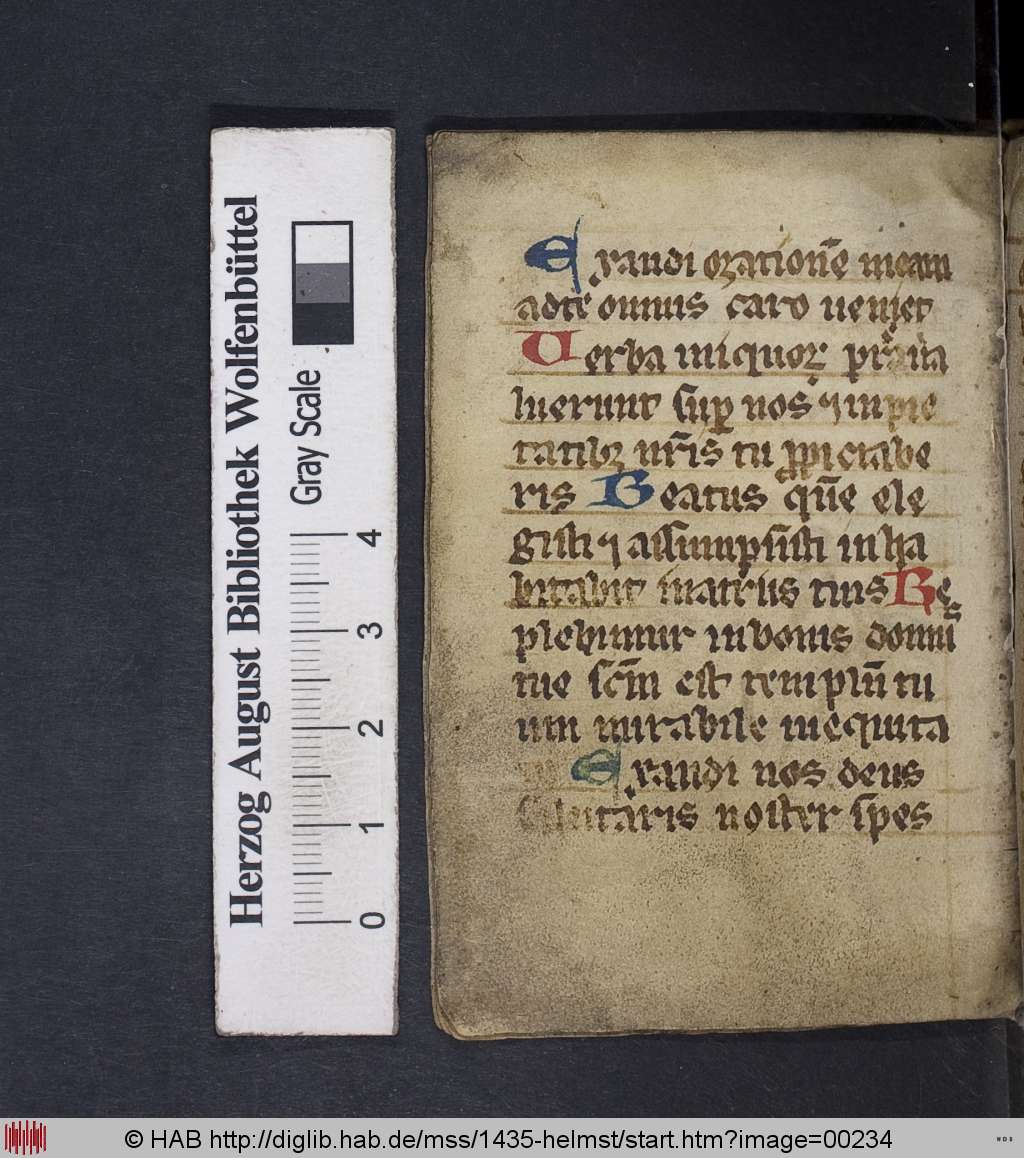 Herzog August Bibliothek Wolfenbüttel
Gray Scale
0 1 2 3 4
Exaudi orationē meam
adte omnis caro ueniet
Uerba iniquoꝝ
luerunt suꝑ nos ⁊ inpie
tatibꝫ nr̄is tu ꝓpiciabe
ris Beatus quē ele
gisti ⁊ assumpsisti inha
bitabit inatriis tuis Re
plebimur inbonis domu
tue scm̄ est templū tu
um mirabile inequita
Exaudi nos deus
salutaris noster spes
© HAB http://diglib.hab.de/mss/1435-helmst/start.htm?image=00234